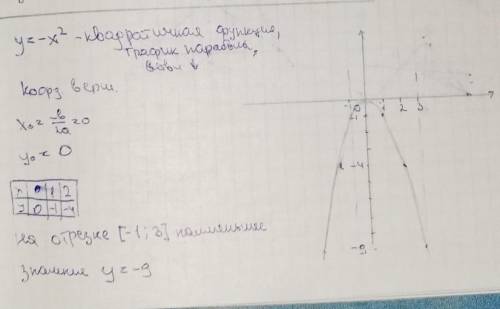 y = -x² - квадратичная функция,
график парабола,
ветви ↓
Коорд верш.
x₀ = -b/2a = 0
y₀ = 0
x 0 1 2
y 0 -1 -4
на отрезке [-1; 3] наименьшее
значение y = -9
-1 0 1 2 3
-1
-4
-9